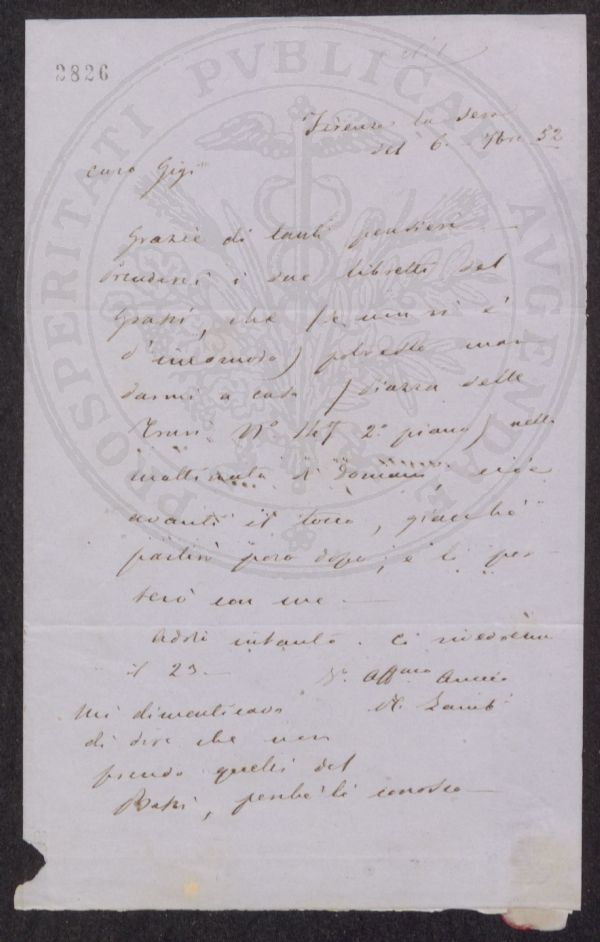 2826
PROSPERITATI PVBLICAE AVGENDAE
Firenze la sera
del 6. 7bre 52
Caro Gigi
Grazie di tanti pensieri
Prenderei i due libretti del
Grassi, che (se non vi è
d'incomodo) potreste man
darmi a casa (piazza delle
Travi Nº 147 2º piano) nella
mattinata di domani, cioè
avanti il tocco, giacchè
partirò poco dopo, e li por-
terò con me —
Addio intanto. Ci rivedremo
il 23 —
Vº. Affmo Amico
Mi dimenticavo
di dire che non
prendo quelli del
perchè li conosco —